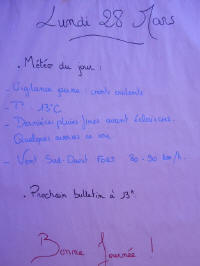 Lundi 28 Mars
• Météo du jour :
- Vigilance jaune : vents violents
- T° : 13°C
- Dernières pluies fines avant éclaircies.
Quelques averses ce soir.
- Vent Sud-Ouest FORT 80-90 km/h.
• Prochain bulletin à 13h
Bonne Journée !